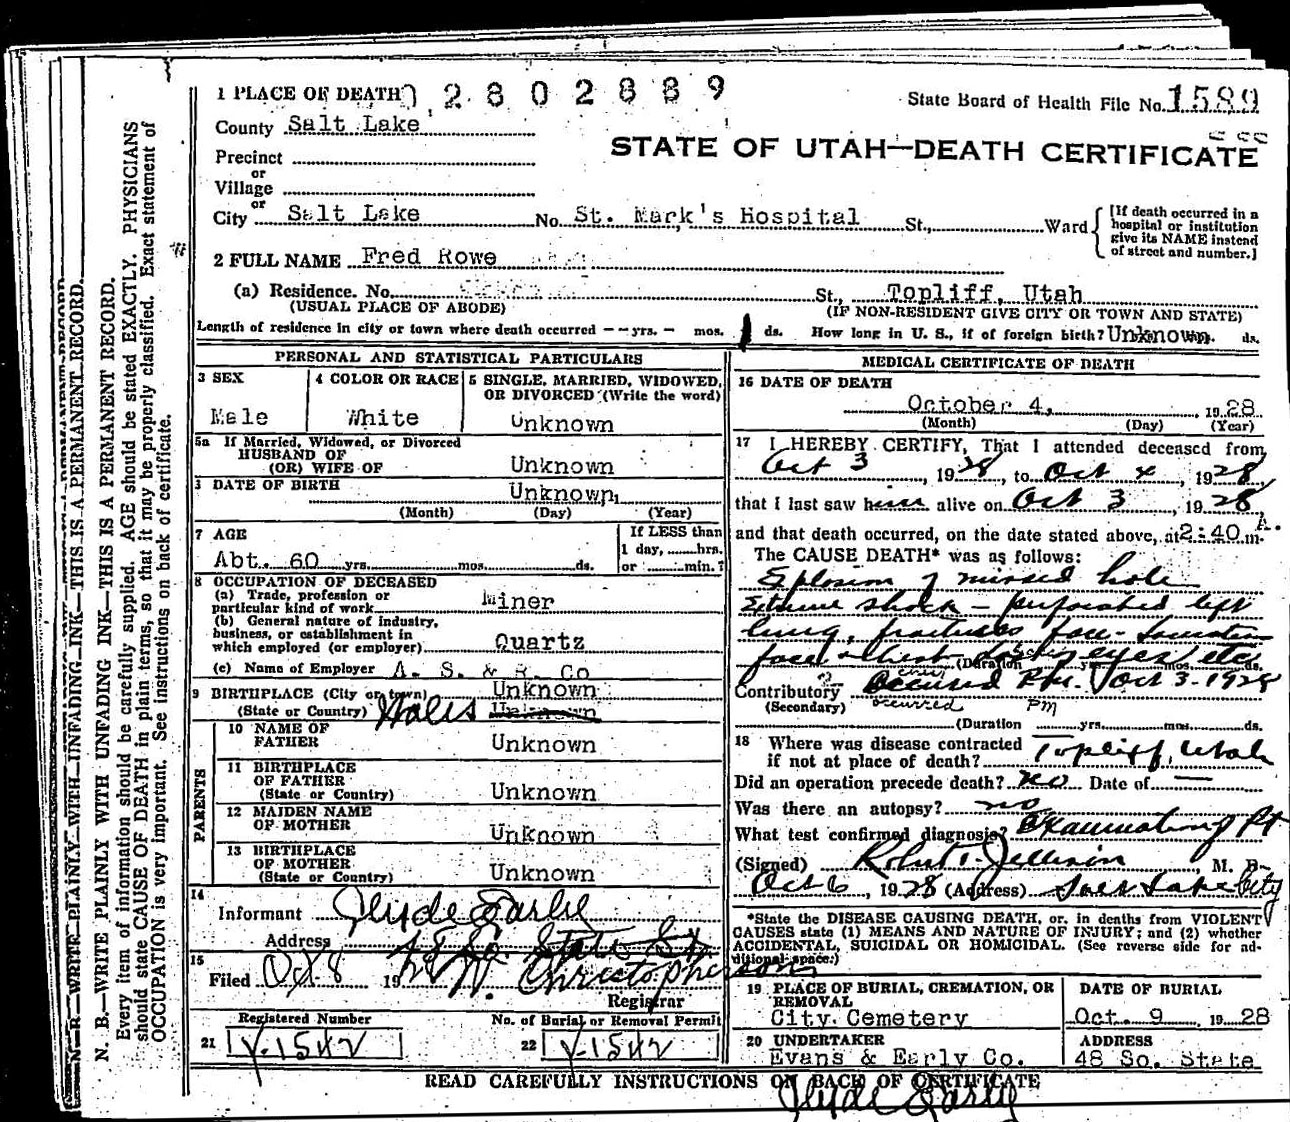 1 PLACE OF DEATH 2 8 0 2 8 8 9
State Board of Health File No. 1589
County Salt Lake
STATE OF UTAH—DEATH CERTIFICATE
Precinct
or
Village
or
City Salt Lake No. St. Mark's Hospital St., Ward
[If death occurred in a hospital or institution give its NAME instead of street and number.]
2 FULL NAME Fred Rowe
(a) Residence. No. St., Topliff, Utah
(USUAL PLACE OF ABODE) (IF NON-RESIDENT GIVE CITY OR TOWN AND STATE)
Length of residence in city or town where death occurred — — yrs. — mos. 1 ds. How long in U. S., if of foreign birth? Unknown. ds.
PERSONAL AND STATISTICAL PARTICULARS
3 SEX
Male
4 COLOR OR RACE
White
5 SINGLE, MARRIED, WIDOWED, OR DIVORCED (Write the word)
Unknown
5a If Married, Widowed, or Divorced
HUSBAND OF
(OR) WIFE OF Unknown
DATE OF BIRTH Unknown
(Month) (Day) (Year)
7 AGE
Abt. 60 yrs. mos. ds.
If LESS than
1 day, hrs.
or min.?
8 OCCUPATION OF DECEASED
(a) Trade, profession or
particular kind of work Miner
(b) General nature of industry,
business, or establishment in
which employed (or employer) Quartz
(c) Name of Employer A. S. & R. Co
9 BIRTHPLACE (City or town) Unknown
(State or Country) Wales Unknown
PARENTS
10 NAME OF
FATHER Unknown
11 BIRTHPLACE
OF FATHER
(State or Country) Unknown
12 MAIDEN NAME
OF MOTHER Unknown
13 BIRTHPLACE
OF MOTHER
(State or Country) Unknown
14
Informant Clyde Earle
Address 48 So. State St
15
Filed Oct 8 1928 W. Christopherson
Registrar
Registered Number
21 Y-1542
No. of Burial or Removal Permit
22 Y-1542
MEDICAL CERTIFICATE OF DEATH
16 DATE OF DEATH
October 4, 1928
(Month) (Day) (Year)
17 I HEREBY CERTIFY, That I attended deceased from
Oct 3, 1928, to Oct 4, 1928,
that I last saw him alive on Oct 3, 1928,
and that death occurred, on the date stated above, at 2:40 A. m.
The CAUSE DEATH* was as follows:
Explosion of missed hole
Extreme shock — perforated left
lung, fractures face - laceration
face & chest eyes, etc.
(Duration yrs. mos. ds.
Contributory Occured PM. Oct 3-1928
(Secondary) occurred PM
(Duration yrs. mos. ds.
18 Where was disease contracted
if not at place of death? Topliff, Utah
Did an operation precede death? no Date of —
Was there an autopsy? no
What test confirmed diagnosis? Examination of Pt
(Signed) Robert T. Jellison M. D.
Oct 6, 1928 (Address) Salt Lake City
*State the DISEASE CAUSING DEATH, or, in deaths from VIOLENT
CAUSES state (1) MEANS AND NATURE OF INJURY; and (2) whether
ACCIDENTAL, SUICIDAL OR HOMICIDAL. (See reverse side for ad-
ditional space.)
19 PLACE OF BURIAL, CREMATION, OR REMOVAL
City Cemetery
DATE OF BURIAL
Oct. 9 1928
20 UNDERTAKER
Evans & Early Co.
ADDRESS
48 So. State
READ CAREFULLY INSTRUCTIONS ON BACK OF CERTIFICATE
Clyde Early
N. B.—WRITE PLAINLY WITH UNFADING INK—THIS IS A PERMANENT RECORD.
N. B.—WRITE PLAINLY WITH UNFADING INK—THIS IS A PERMANENT RECORD.
Every item of information should be carefully supplied. AGE should be stated EXACTLY. PHYSICIANS
should state CAUSE OF DEATH in plain terms, so that it may be properly classified. Exact statement of
OCCUPATION is very important. See instructions on back of certificate.